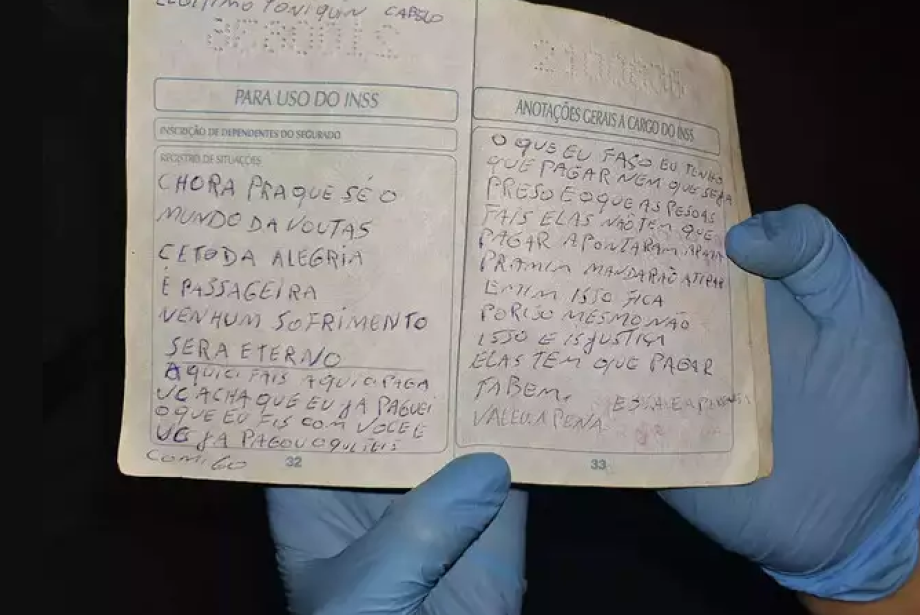 TONIQUIN CABELO
PARA USO DO INSS
INSCRIÇÃO DE DEPENDENTES DO SEGURADO
REGISTRO DE SITUAÇÕES
CHORA PRAQUE SÉ O
MUNDO DA VOUTAS
CETODA ALEGRIA
É PASSAGEIRA
NENHUM SOFRIMENTO
SERA ETERNO
AQUICI FAIS AQUICI PAGA
VC ACHA QUE EU JA PAGUEI
OQUE EU FIS COM VOCE E
VC JA PAGOU OQUE
COMIGO
32
ANOTAÇÕES GERAIS A CARGO DO INSS
O QUE EU FAÇO EU TENHO
QUE PAGAR NEM QUE SEJA
PRESO E OQUE AS PESOAS
FAIS ELAS NÃO TEM QUE
PAGAR APONTARAM
PRAMIM MANDARÃO ATIRAR
EMIM ISSO FICA
PORISO MESMO NÃO
ISSO E ISJUSTIÇA
ELAS TEM QUE PAGAR
TABEM.
VALEU A PENA
33